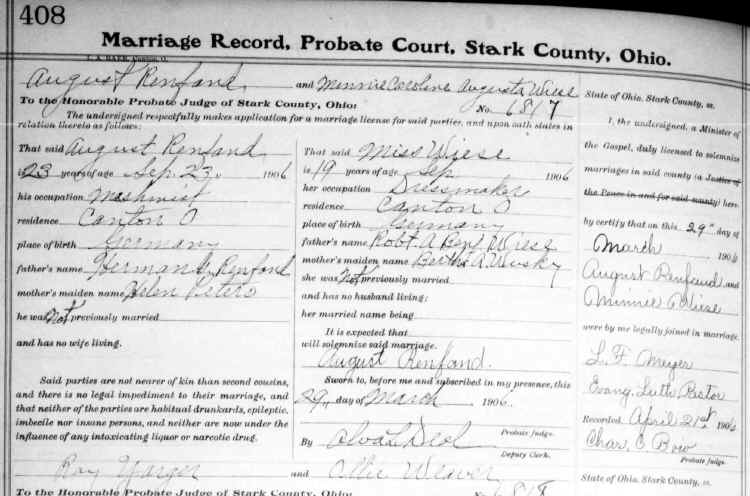 408
Marriage Record, Probate Court, Stark County, Ohio.
August Renfand and Minnie Caroline Augusta Wiese
To the Honorable Probate Judge of Stark County, Ohio: No. 6817
The undersigned respectfully makes application for a marriage license for said parties, and upon oath states in
relation thereto as follows:
That said August Renfand
is 23 years of age Sep. 23, 1906
his occupation Mashinist
residence Canton O
place of birth Germany
father's name Herman Renfand
mother's maiden name Helen Peters
he was Not previously married
and has no wife living.
Said parties are not nearer of kin than second cousins,
and there is no legal impediment to their marriage, and
that neither of the parties are habitual drunkards, epileptic,
imbecile nor insane persons, and neither are now under the
influence of any intoxicating liquor or narcotic drug.
That said Miss Wiese
is 19 years of age Sep 1906
her occupation Dressmaker
residence Canton O
place of birth Germany
father's name Robt. A. Wiese
mother's maiden name Bertha A.
she was Not previously married
and has no husband living;
her married name being
It is expected that
will solemnize said marriage.
August Renfand.
Sworn to, before me and subscribed in my presence, this
29, day of March 1906.
Probate Judge.
By Alva L. Deol
Deputy Clerk.
State of Ohio, Stark County, ss.
I, the undersigned, a Minister of
the Gospel, duly licensed to solemnize
marriages in said county (a Justice of
the Peace in and for said county) here-
by certify that on this 29th day of
March 1906
August Renfand and
Minnie Wiese
were by me legally joined in marriage.
L. F. Meyer
Evang. Luth Pastor
Recorded April 21st 1906
Chas. C Bow
Probate Judge.
Roy Yarger and Ollie Weaver
State of Ohio, Stark County, ss.
To the Honorable Probate Judge of Stark County, Ohio: No. 6818